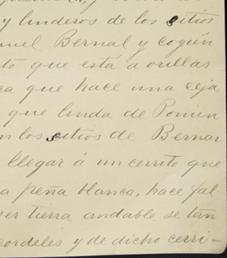 y linderos de los sitios
nuel Bernal y según
to que está a orillas
ca que hace una ceja
que linda de Ponien
n los sitios de Bernar
llegar á un cerrito que
a peña blanca, hace fal
er tierra andable se tan
cordeles y de dicho cerri-